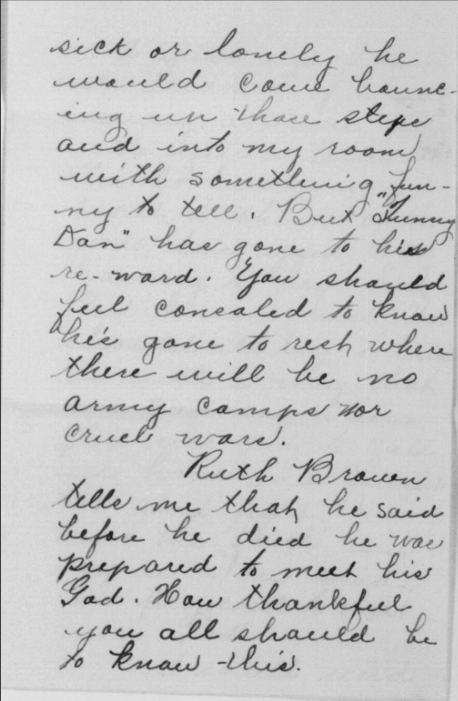 sick or lonely he
would come bounc-
ing up those steps
and into my room
with something fun-
ny to tell. But "Funny
Dan" has gone to his
re-ward. You should
feel consoled to know
he's gone to rest where
there will be no
army camps nor
cruel wars.
Ruth Brown
tells me that he said
before he died he was
prepared to meet his
God. How thankful
you all should be
to know this.